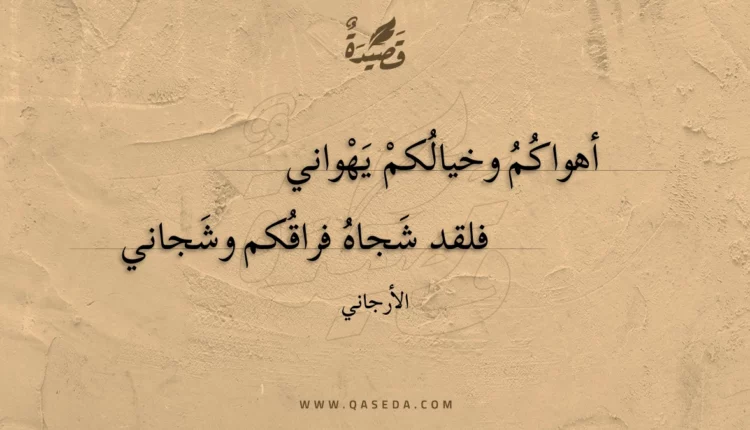 قَصِيدَةٌ
أهواكُمُ وخيالُكمْ يَهْواني
فلقد شَجاهُ فراقُكم وشَجاني
الأرجاني
WWW.QASEDA.COM